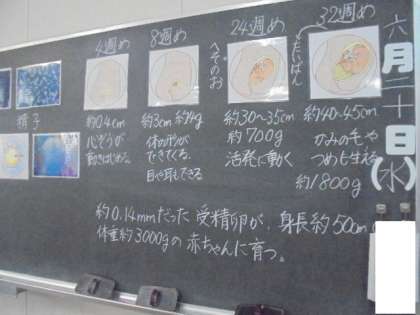 4週め
8週め
24週め
32週め
へそのお
たいばん
精子
約0.4cm
心ぞうが
動きはじめる。
約3cm 約4g
体の形が
できてくる。
目や耳もできる
約30~35cm
約700g
活発に動く
約40~45cm
かみの毛や
つめも生える
約1800g
約0.14mmだった 受精卵が、身長約50cm
体重約3000gの赤ちゃんに育つ。
六月二十日(水)